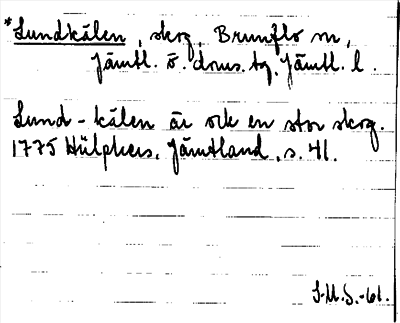 *Lundkälen, skog, Brunflo sn,
Jämtl. ö. doms. tg, Jämtl. l.
Lund-kälen är ock en stor skog.
1775 Hülphers, Jämtland, s. 41.
S.M.S.-61.